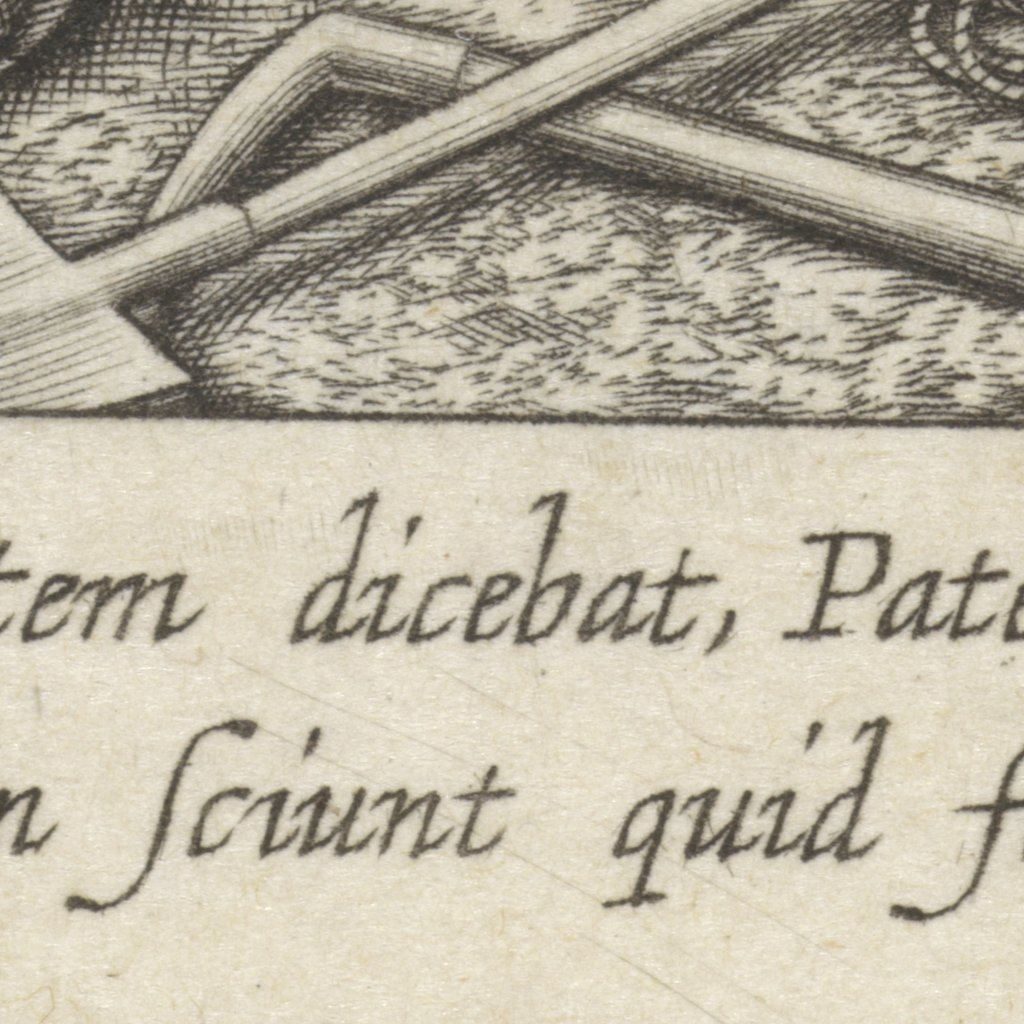 tem dicebat, Pate
n ſciunt quid f